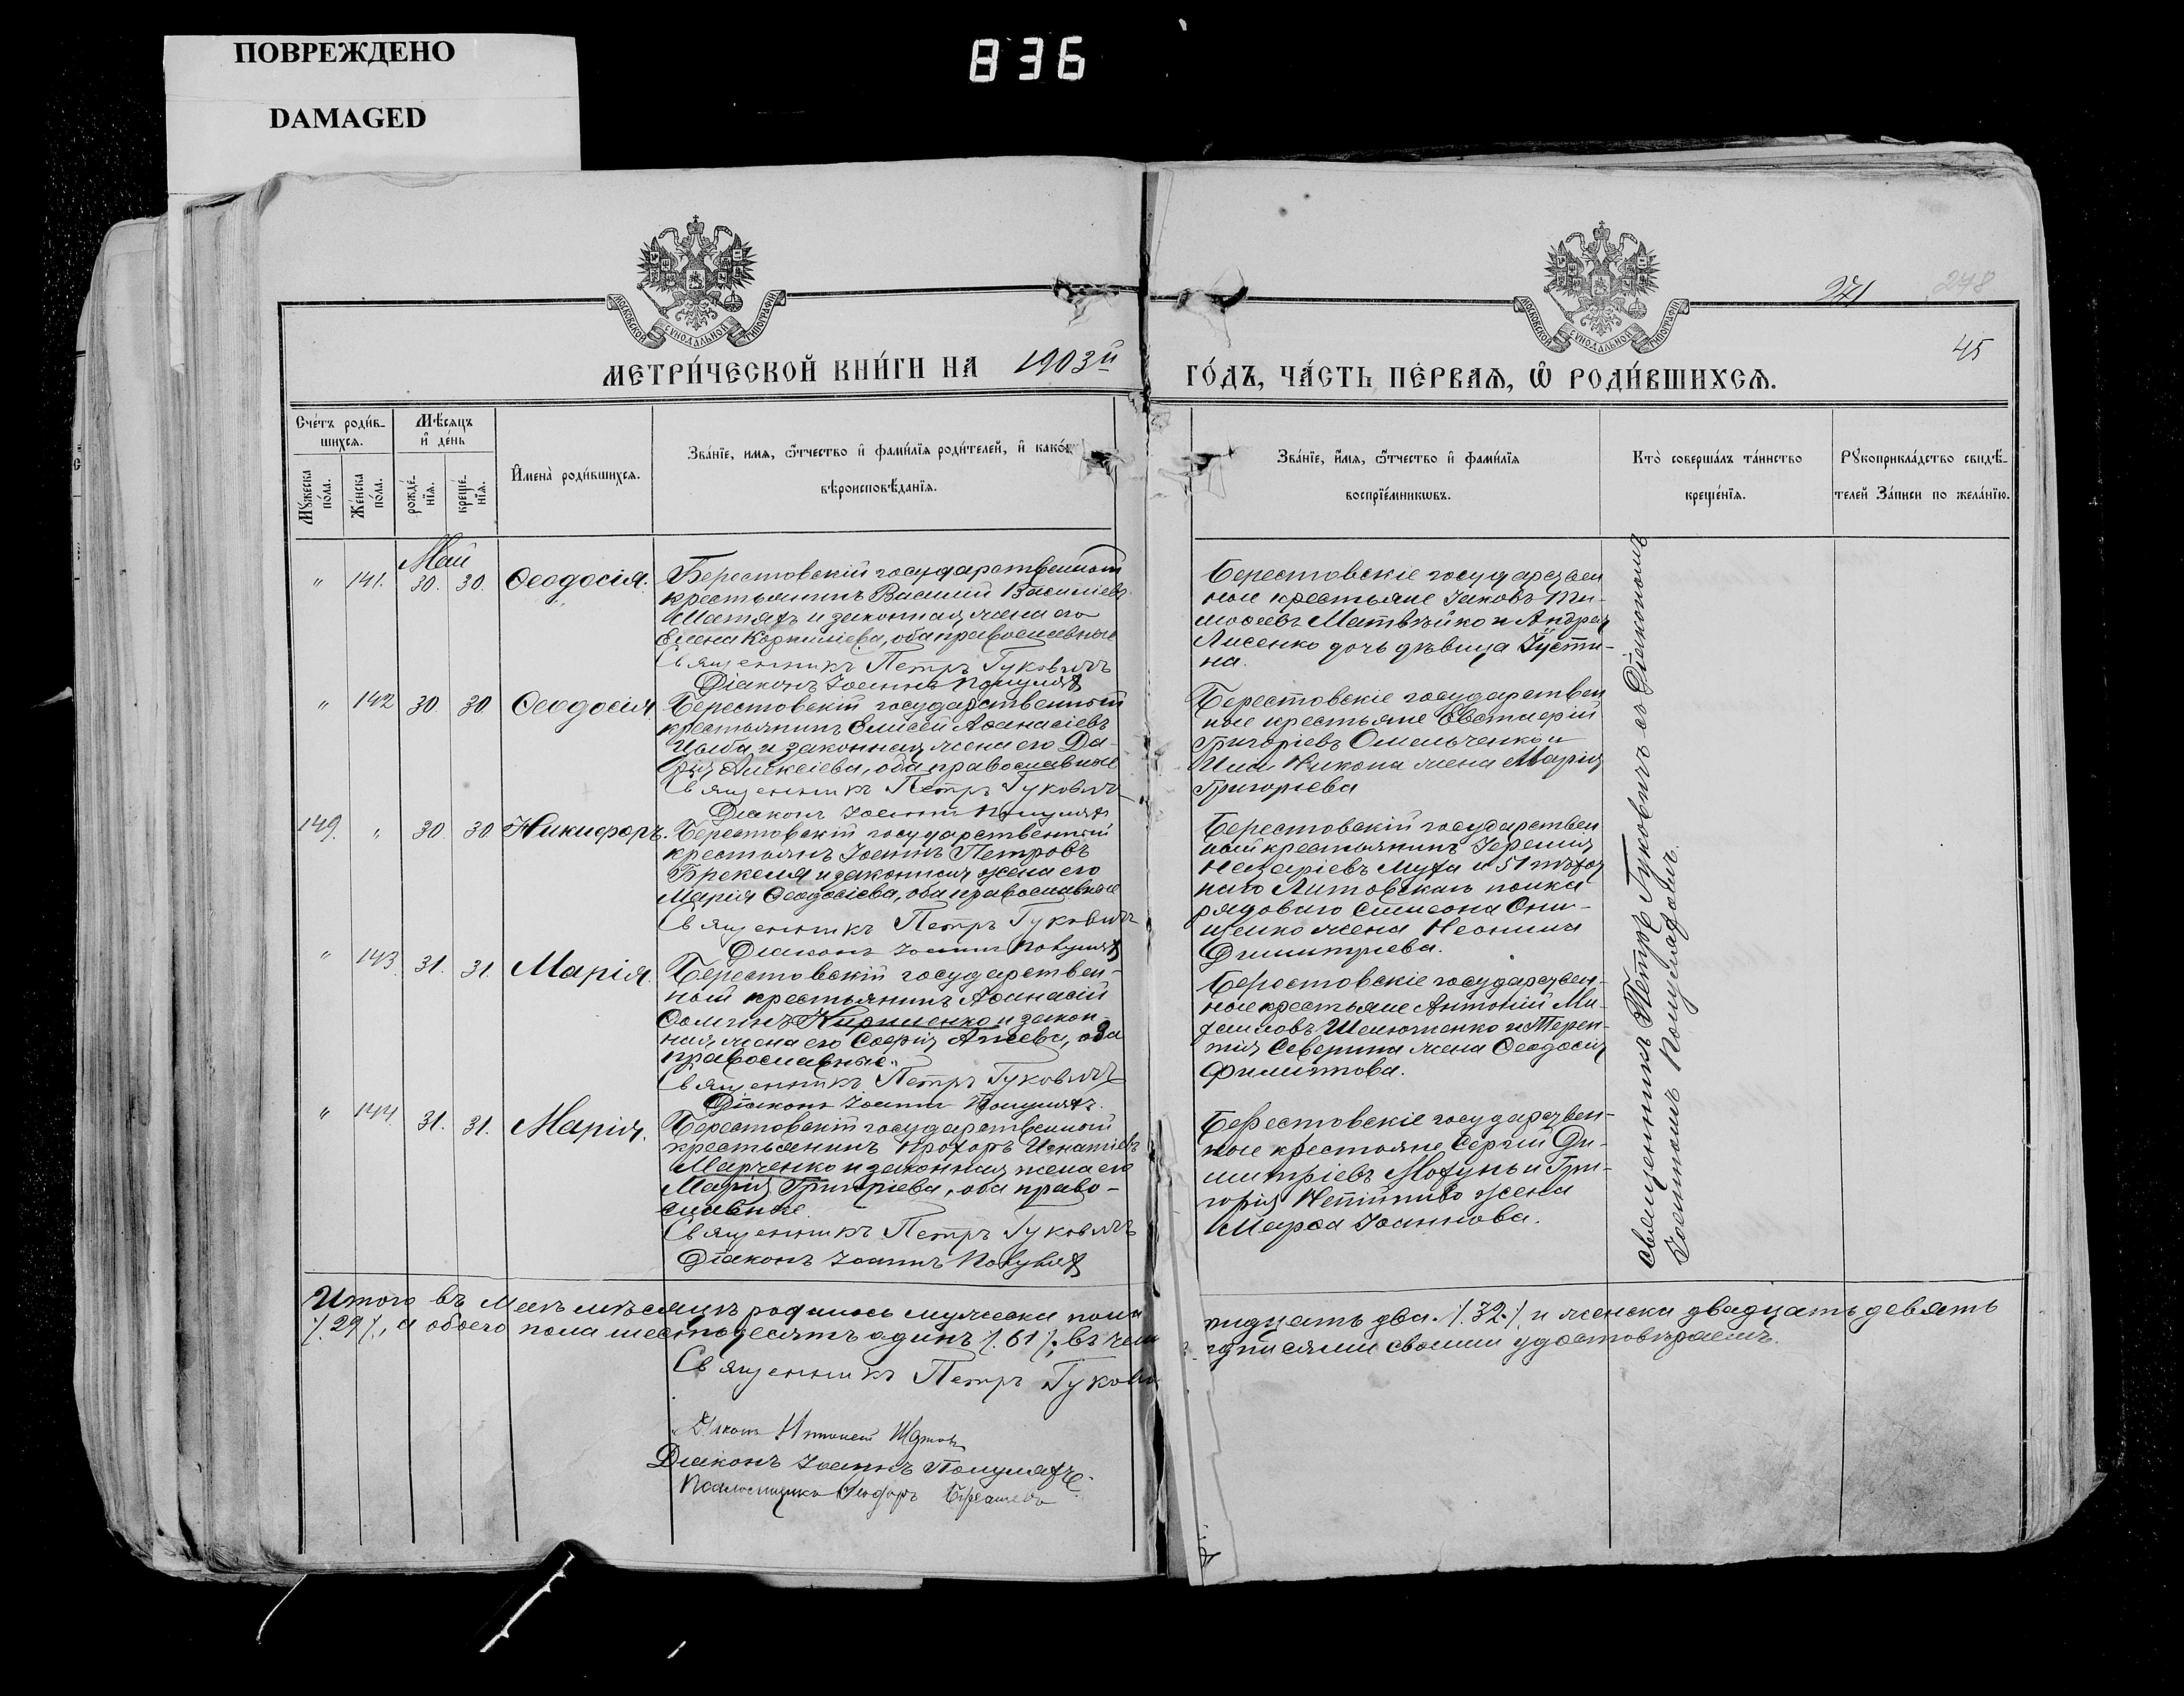 ПОВРЕЖДЕНО
DAMAGED
836
МОСКОВСКОЙ СѴНОДАЛЬНОЙ ТИПОГРАФІИ
МОСКОВСКОЙ СѴНОДАЛЬНОЙ ТИПОГРАФІИ
271
248
45
МЕТРИ́ЧЕСКОЙ КНИ́ГИ НА 1903й
ГО́ДЪ, ЧА́СТЬ ПЕ́РВАѦ, Ѡ҆ РОДИ́ВШИХСѦ.
Сче́тъ роди́в-
шихсѧ.
Мꙋ́жеска по́ла.
Же́нска по́ла.
Мѣ́сѧцъ
и҆ де́нь
рожде́-нїѧ.
креще́-нїѧ.
И҆мена̀ роди́вшихсѧ.
Зва́нїе, имѧ, ѻ҆́тчество и҆ фами́лїѧ роди́телей, и҆ како́гѡ
вѣроисповѣ́данїѧ.
Зва́нїе, и҆́мѧ, ѻ҆́тчество и҆ фами́лїѧ
воспрїе́мникѡвъ.
Кто̀ соверша́лъ та́инство
креще́нїѧ.
Рꙋкоприкла́дство свидѣ́-
телей За́писи по жела́нїю.
Май
" 141. 30. 30. Ѳеодосія.
Берестовскій государственный
крестьянинъ Василій Васильевъ
и законная жена его
Елена Корниліева, оба православные
Священникъ Петръ Гуковичъ
Діаконъ Іоаннъ
Берестовскіе государствен
ные крестьяне Іаковъ Ти-
моѳеевъ Матвѣйко и Андрея
Лисенко дочь дѣвица Іусти-
на.
" 142 30. 30. Ѳеодосія.
Берестовскій государственный
крестьянинъ Елисей Аѳанасіевъ
Цыба и законная жена его Да-
рія Алексіева, оба православные
Священникъ Петръ Гуковичъ
Діаконъ Іоаннъ
Берестовскіе государствен
ные крестьяне Евстаѳій
Григоріевъ Омельченко и
Никона жена Марія
Григорьева
149. " 30. 30 Никифоръ.
Берестовскій государственный
крестьянъ Іоаннъ Петровъ
Брекеля и законная жена его
Марія Ѳеодосіева, оба православные
Священникъ Петръ Гуковичъ
Діаконъ Іоаннъ
Берестовскій государствен
ный крестьянинъ Іеремія
Назаріевъ Муха и 51 пѣхот
наго Литовскаго полка
рядоваго Симеона Они-
щенко жена Неонила
Димитріева.
" 143. 31. 31. Марія.
Берестовскій государствен-
ный крестьянинъ Аѳанасій
Ѳоминъ Кириленко и закон-
ная жена его Софія Агеева, оба
православные.
Священникъ Петръ Гуковичъ
Діаконъ Іоаннъ
Берестовскіе государствен-
ные крестьяне Антоній Ми-
хаиловъ и Терен-
тія Северина жена Ѳеодосія
Филиппова.
" 144. 31. 31. Марія.
Берестовскій государственный
крестьянинъ Прохоръ Игнатіевъ
Марченко и законная жена его
Марія Григоріева, оба право-
славные.
Священникъ Петръ Гуковичъ
Діаконъ Іоаннъ
Берестовскіе государствен-
ные крестьяне Сергій Ди-
митріевъ и Гри-
горія Непійпиво жена
Марѳа Іоаннова.
Священникъ Петръ Гуковичъ съ Діакономъ
Іоанномъ
Итого въ Маѣ мѣсяцѣ родилось мужеска пола тридцать два ./.32./. и женска двадцать девять
/.29/., а обоего пола шестьдесятъ одинъ /.61/.; въ чемъ подписями своими удостовѣряемъ.
Священникъ Петръ Гукови
Діаконъ
Діаконъ Іоаннъ
Псаломщикъ Ѳеодоръ